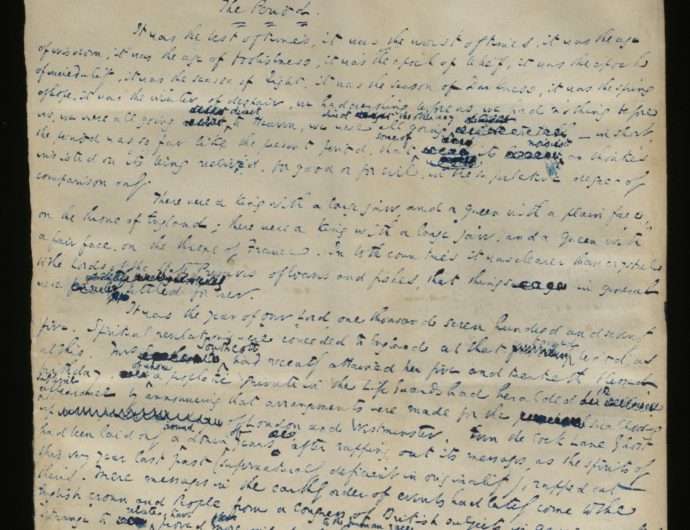 The Period.
It was the best of times, it was the worst of times, it was the age
of wisdom, it was the age of foolishness, it was the epoch of belief, it was the epoch
of incredulity, it was the season of Light, it was the season of Darkness, it was the spring
of hope, it was the winter of despair, we had everything before us, we had nothing before
us, we were all going direct to Heaven, we were all going direct the other way — in short,
the period was so far like the present period, that some of its noisiest authorities
insisted on its being received, for good or for evil, in the superlative degree of
comparison only.
There were a king with a large jaw, and a queen with a plain face,
on the throne of England; there were a king with a large jaw, and a queen with
a fair face, on the throne of France. In both countries it was clearer than crystal
to the Lords of the State Preserves of loaves and fishes, that things in general
were settled for ever.
It was the year of Our Lord, one thousand seven hundred and seventy
five. Spiritual revelations were conceded to England at that period, as
at this. Mrs Southcott had recently attained her five and twentieth blessed
birthday, of whom a prophetic private in the Life Guards had heralded the sublime
appearance by announcing that arrangements were made for the
up of London and Westminster. Even the Cock Lane Ghost
had been laid only a round dozen of years, after rapping out its messages, as the spirits of
this very year last past (supernaturally deficient in originality) rapped out
theirs. Mere messages in the earthly order of events had lately come to the
English crown and People, from a Congress of British subjects in
strange to relate, have proved to the human race